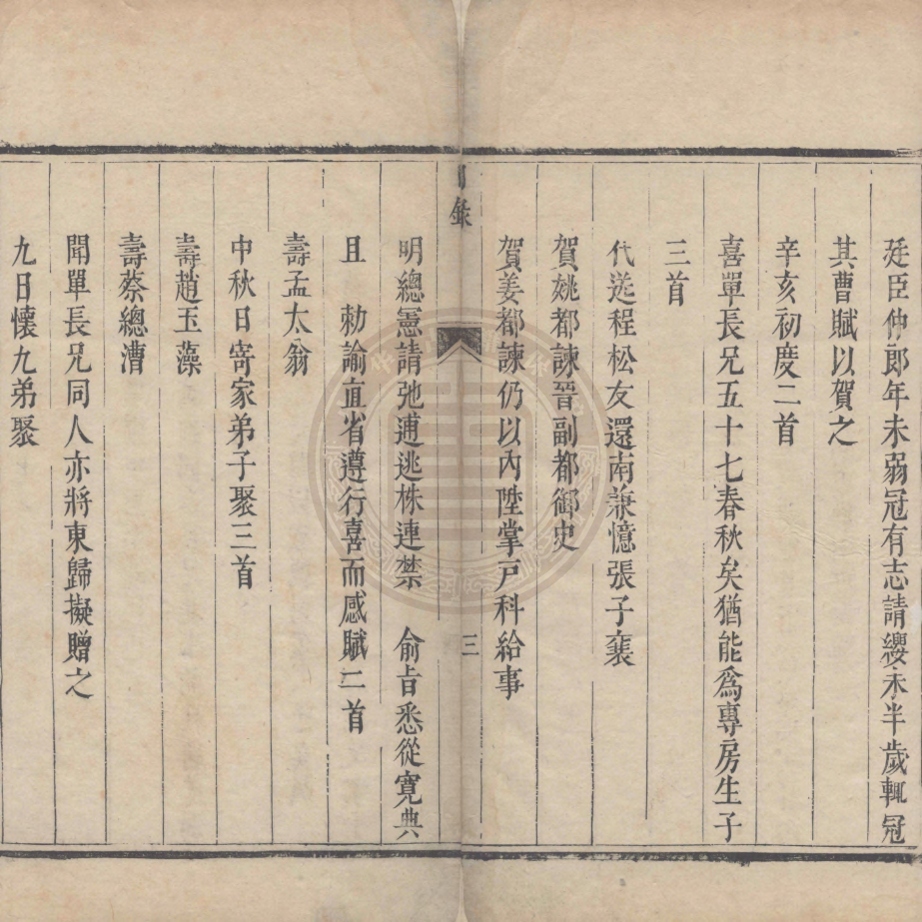 廷臣仲郎年未弱冠有志請纓未半歲輒冠
其曹賦以賀之
辛亥初度二首
喜單長兄五十七春秋矣猶能爲專房生子
三首
代送程松友還南兼憶張子襄
賀姚都諫晉副都御史
賀姜都諫仍以內陞掌戸科給事
目录
三
明總憲請弛逋逃株連禁 俞旨悉從寬典
且 勅諭直省遵行喜而感賦二首
壽孟太翁
中秋日寄家弟子聚三首
壽趙玉藻
壽蔡總漕
聞單長兄同人亦將東歸擬贈之
九日懷九弟聚